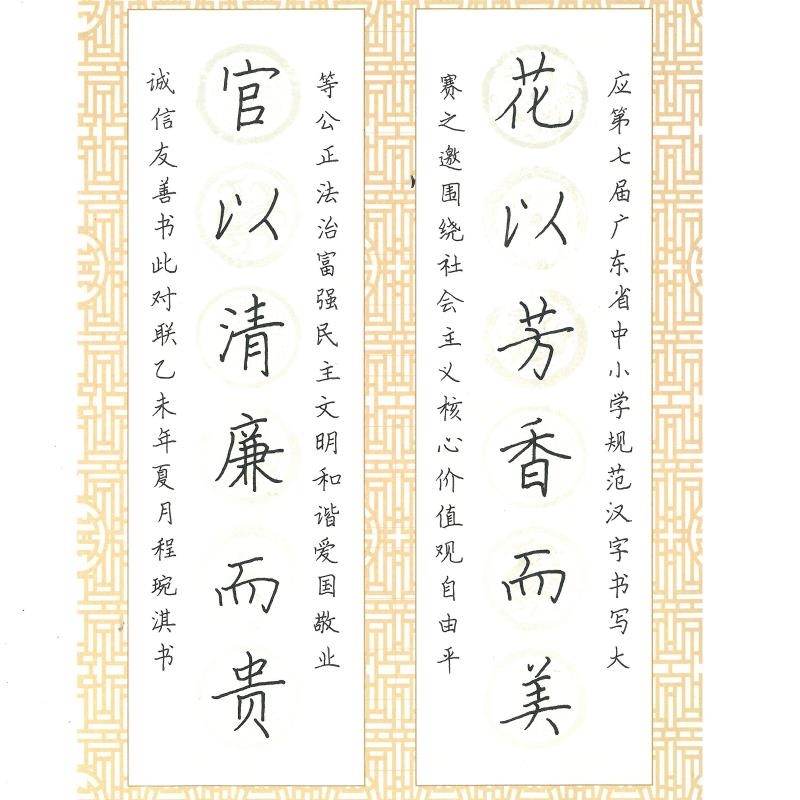 应第七届广东省中小学规范汉字书写大
花以芳香而美
赛之邀围绕社会主义核心价值观自由平
等公正法治富强民主文明和谐爱国敬业
官以清廉而贵
诚信友善书此对联乙未年夏月程琬淇书